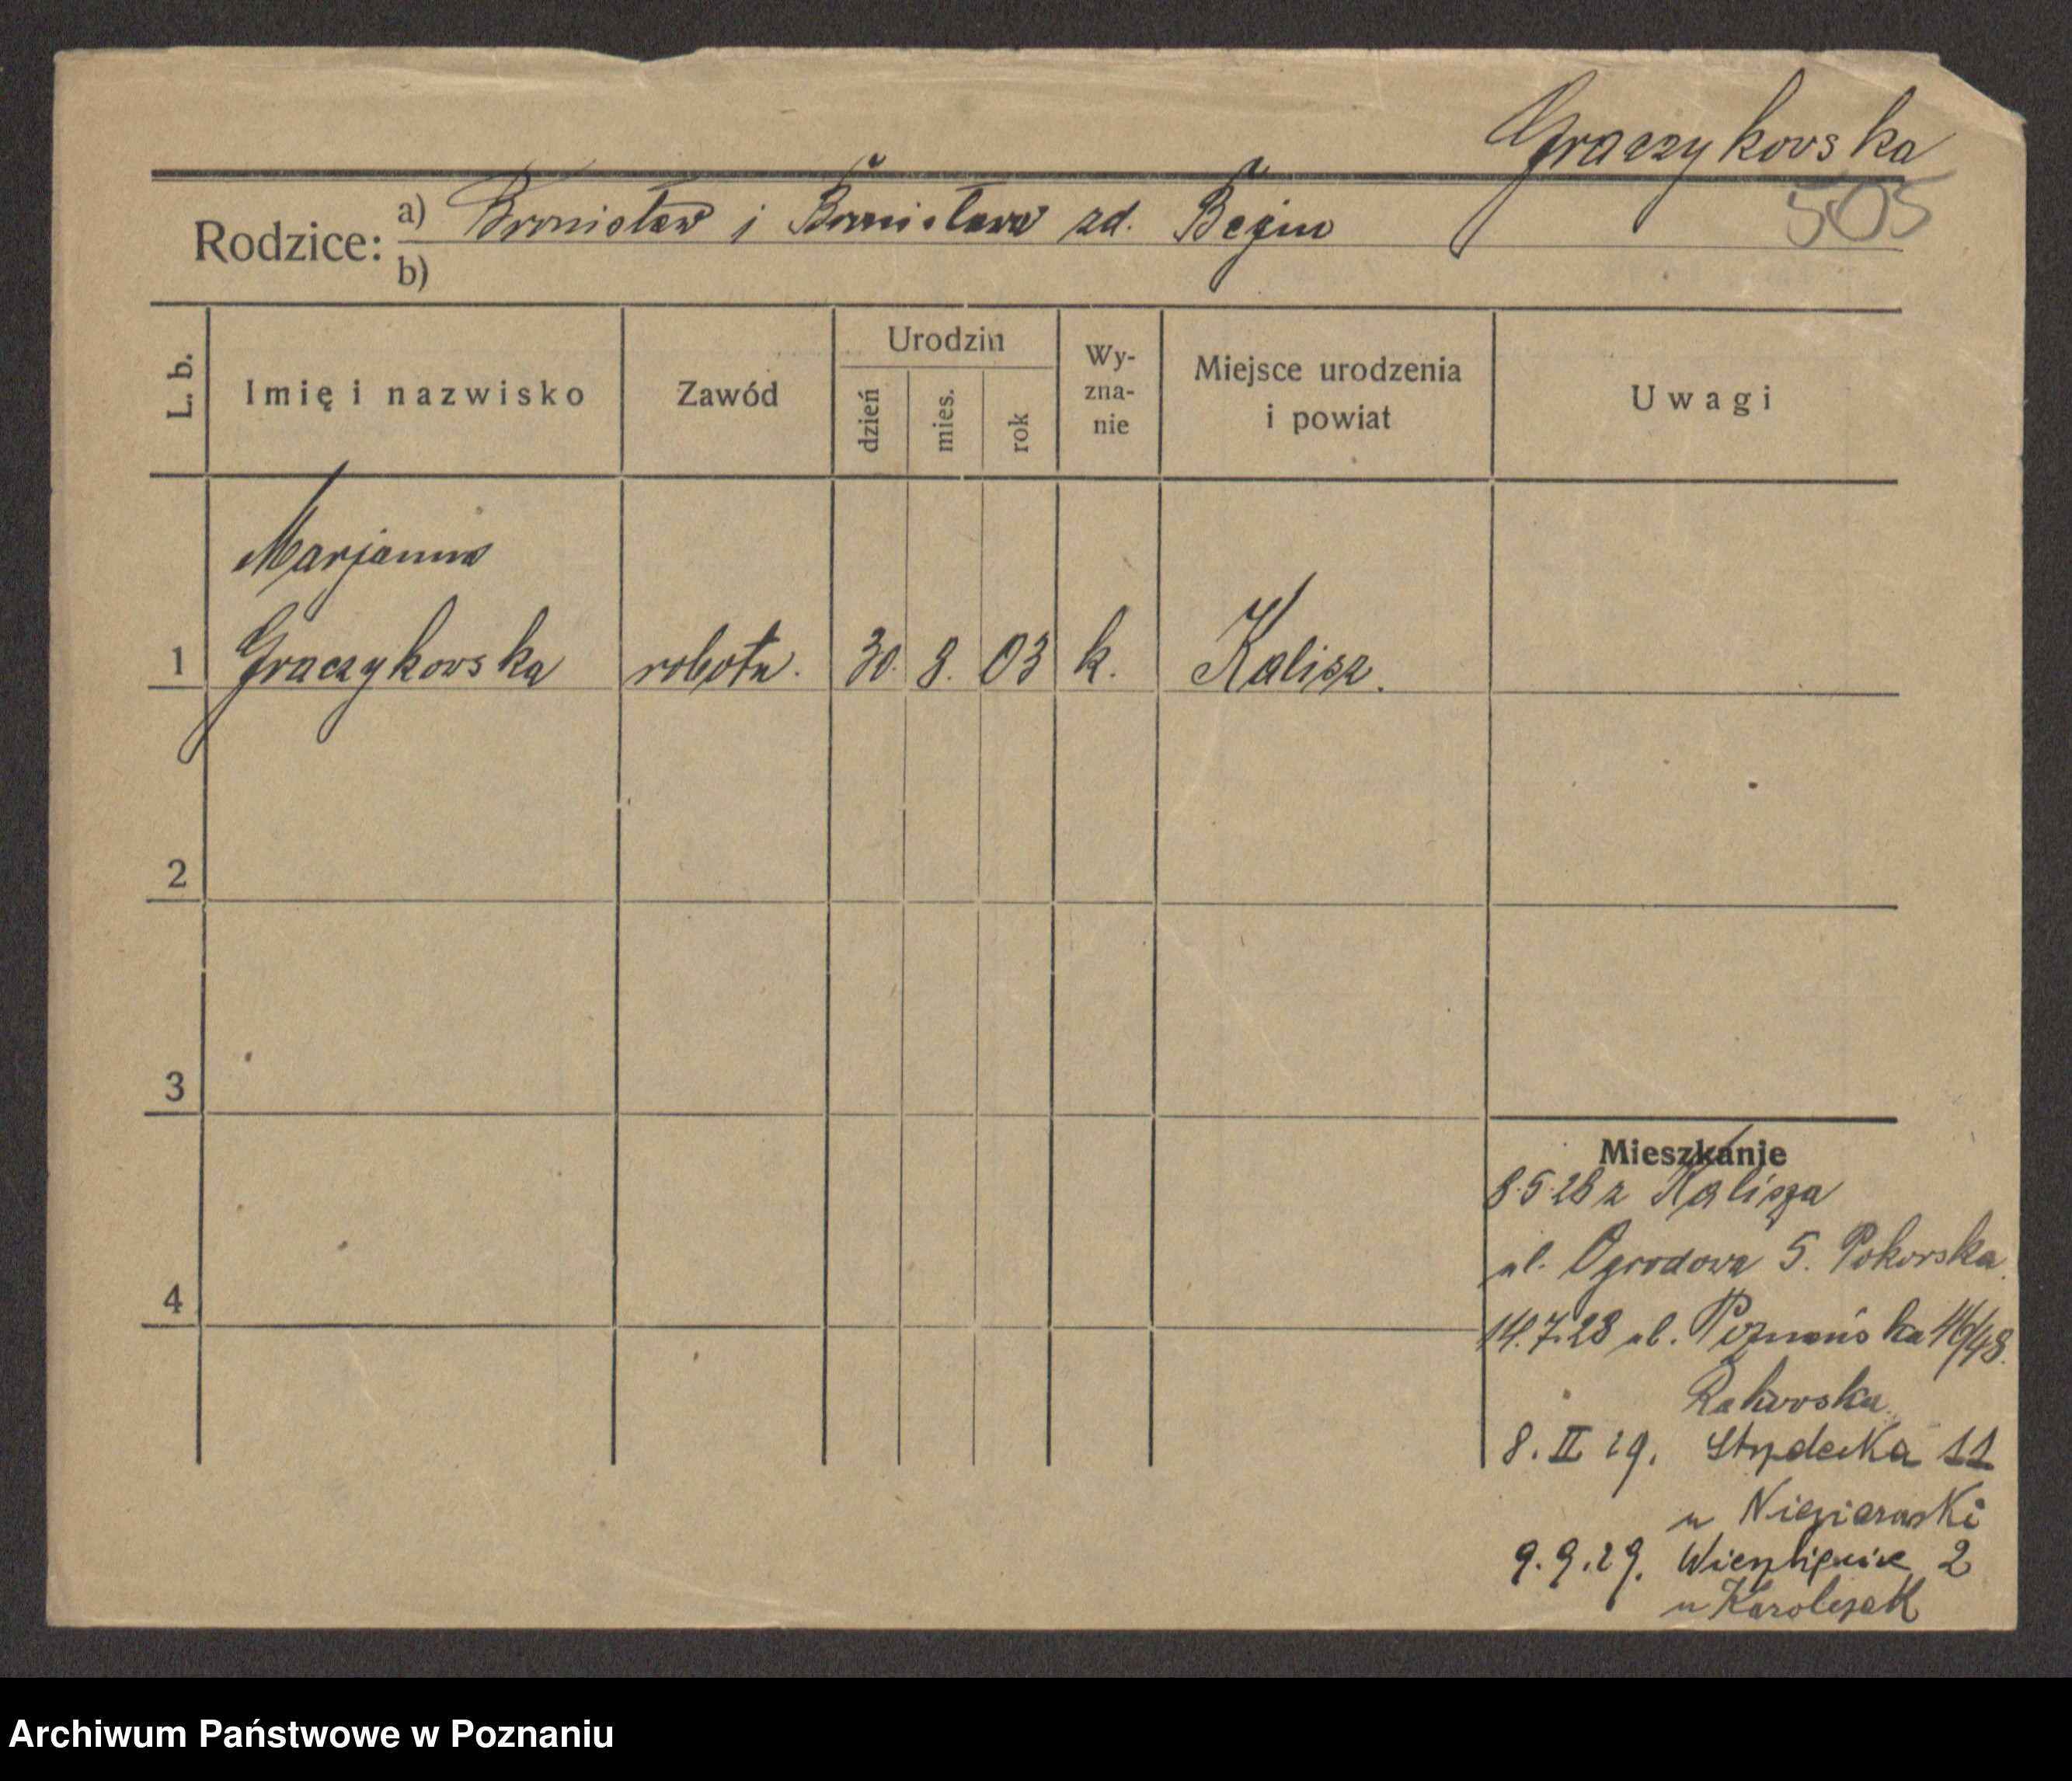 Graczykowska
505
Rodzice: a) Bronisław i Bronisława zd. Bejm
b)
L. b.
Imię i nazwisko
Zawód
Urodzin
dzień
mies.
rok
Wy-
zna-
nie
Miejsce urodzenia
i powiat
Uwagi
Marjanna
1 Graczykowska robotn. 30. 8. 03 k. Kalisz.
2
3
4
Mieszkanie
8.5.28 z Kalisza
ul. Ogrodowa 5. Pokorska.
14.7.28 ul. Poznańska 46/48.
Rakowska
8. II 29. 11
u
9.9.29. 2
u Karolczak
Archiwum Państwowe w Poznaniu